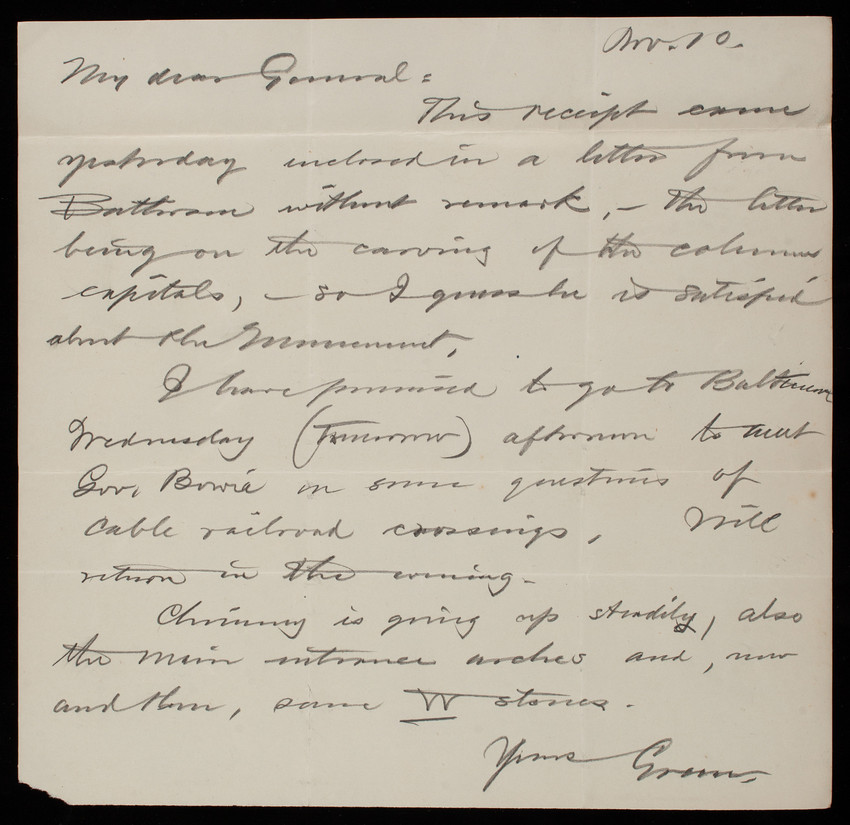 Nov. 10.
My dear General:
This receipt came
yesterday inclosed in a letter from
without remark, - the letter
being on the carving of the columns
capitals, - so I guess he is satisfied
about the Monument.
I have promised to go to Baltimore
Wednesday (tomorrow) afternoon to meet
Gov. Bowie on some questions of
Cable railroad crossings. Will
return in the evening -
Chimney is going up steadily, also
the main entrance arches and, now
and then, some W stones.
Yours Green.